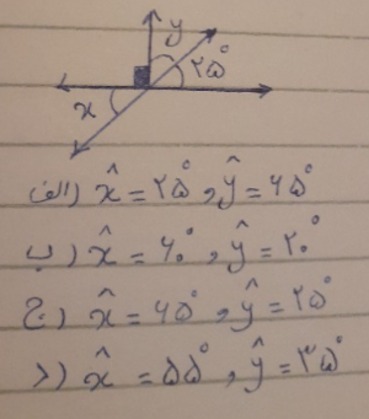 y
۲۵°
x
الف) x̂ = ۲۵° , ŷ = ۶۵°
ب) x̂ = ۶۰° , ŷ = ۲۰°
ج) x̂ = ۶۵° , ŷ = ۲۵°
د) x̂ = ۵۵° , ŷ = ۳۵°